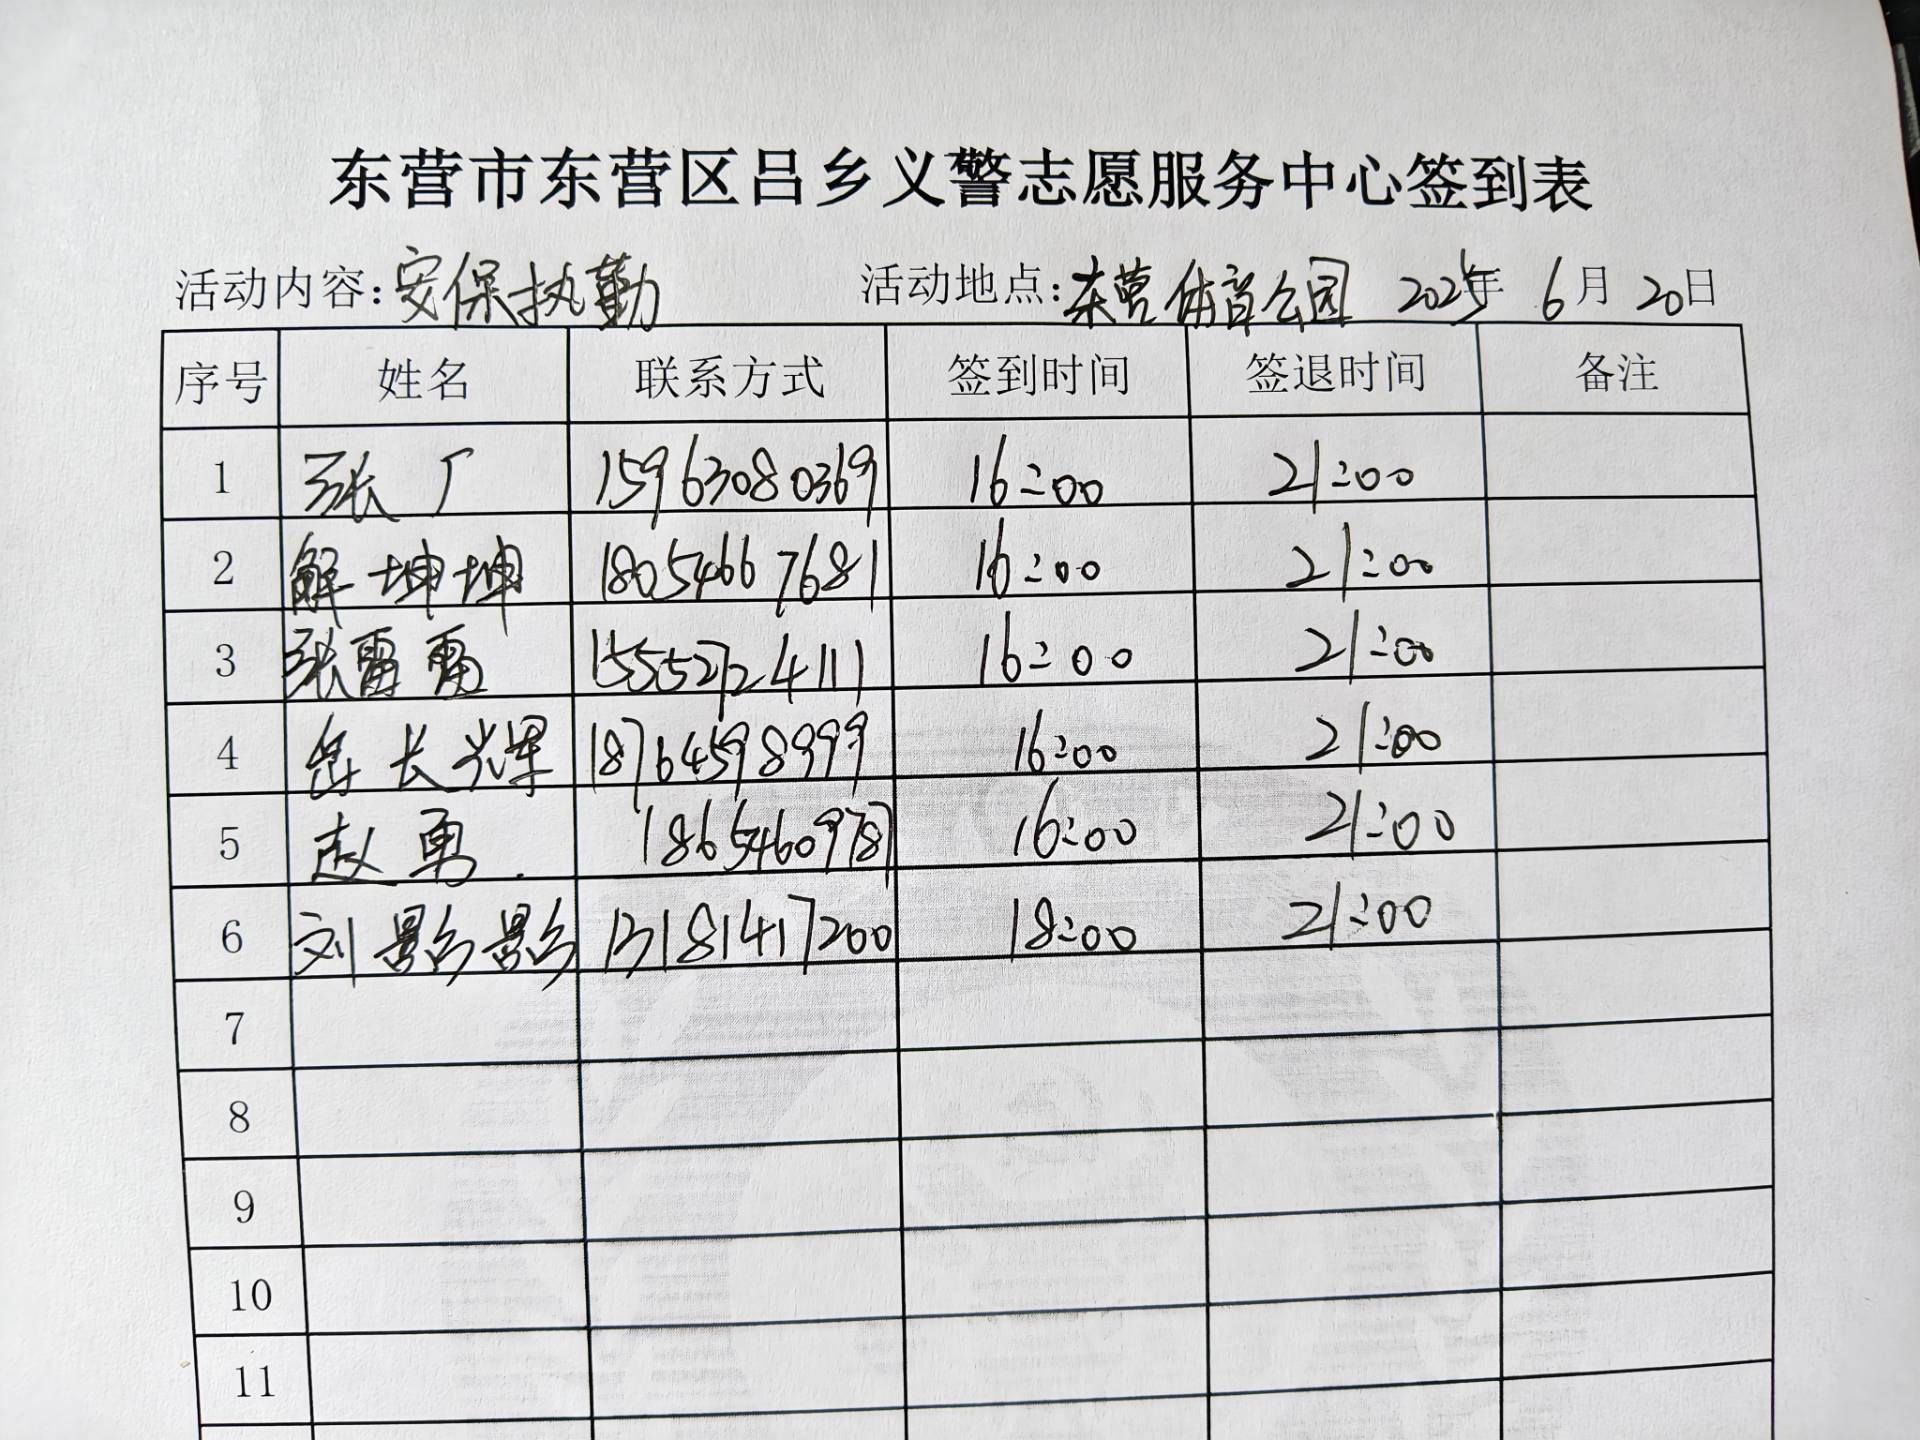 东营市东营区吕乡义警志愿服务中心签到表
活动内容:安保执勤 活动地点:东营体育公园 2025年 6月20日
序号 姓名 联系方式 签到时间 签退时间 备注
1 张广 15963080369 16:00 21:00
2 解坤坤 18054667681 16:00 21:00
3 张雷雷 15552724111 16:00 21:00
4 岳长辉 18764598999 16:00 21:00
5 赵勇 18654609787 16:00 21:00
6 刘影影 13181417200 18:00 21:00
7
8
9
10
11